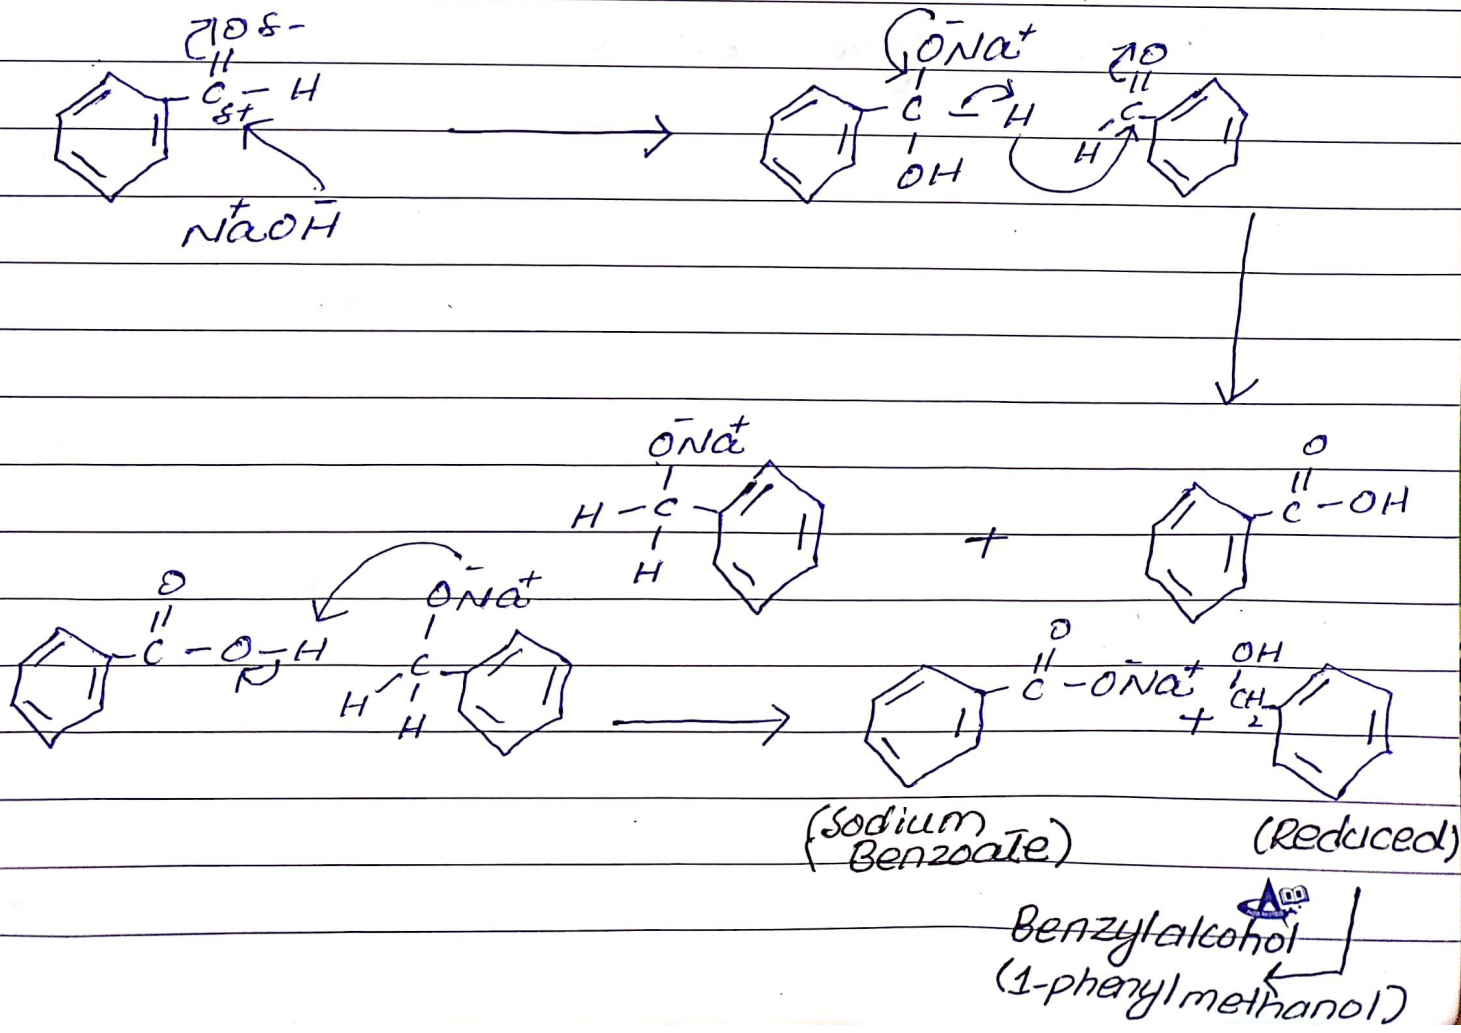 O δ-
C - H
δ+
Na+OH-
O-Na+
C - H
OH
O
C
H
O-Na+
H - C -
H
+
O
C - OH
O
C - O - H
O-Na+
C
H
H
O
C - O-Na+
+
OH
CH2
(Sodium
Benzoate)
(Reduced)
Benzylalcohol
(1-phenylmethanol)